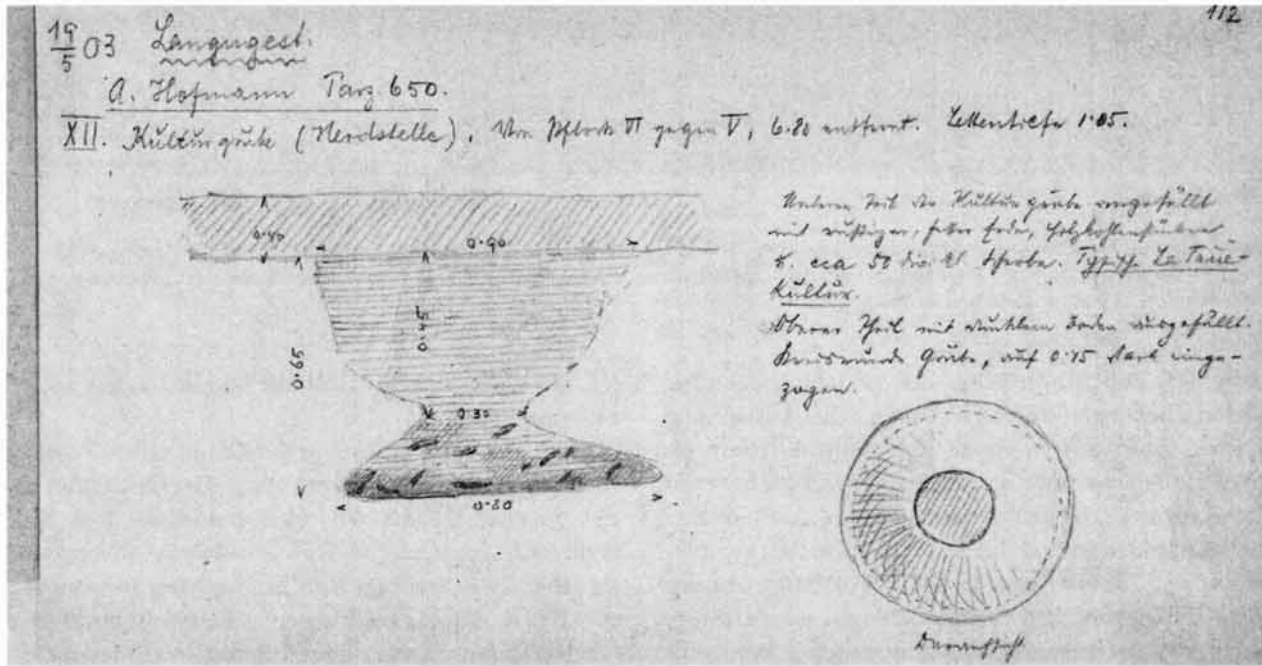 112
19/5 03 Langugest.
A. Hofmann Parz 650.
XII. Kulturgrube (Herdstelle). Von Pflock VI gegen V, 6.80 entfernt. Lettentiefe 1.05.
Unterer Teil der Kulturgrube angefüllt
mit rußiger, fetter Erde, Holzkohlenstücken
u. cca 50 div. Scherbe. Typisch La Tène-
Kultur.
Oberer Theil mit dunklem Boden ausgefüllt.
Kreisrunde Grube, auf stark einge-
zogen.
0.40
0.90
0.45
0.65
0.30
0.80
Daraufsicht